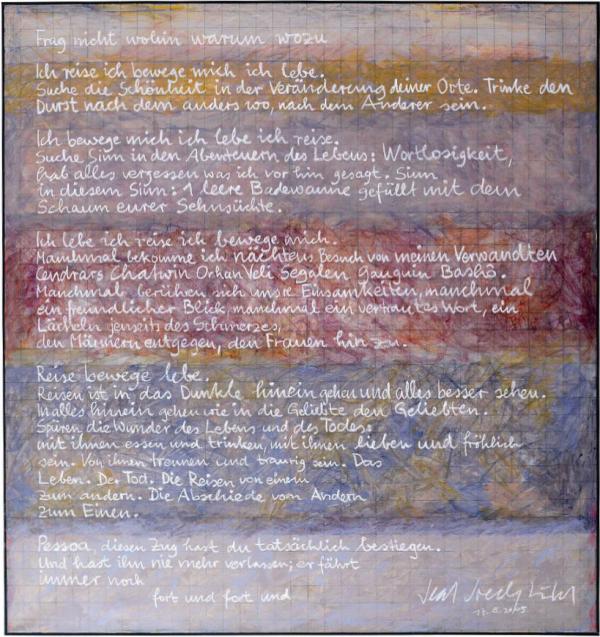 Frag nicht wohin warum wozu
Ich reise ich bewege mich ich lebe.
Suche die Schönheit in der Veränderung deiner Orte. Trinke den
Durst nach dem anders wo, nach dem Anderer sein.
Ich bewege mich ich lebe ich reise.
Suche Sinn in den Abenteuern des Lebens: Wortlosigkeit,
hab alles vergessen was ich vor hin gesagt. Sinn
in diesem Sinn: 1 leere Badewanne gefüllt mit dem
Schaum eurer Sehnsüchte.
Ich lebe ich reise ich bewege mich.
Manchmal bekomme ich nächtens Besuch von meinen Verwandten
Cendrars Chatwin Orhan Veli Segalen Gauguin Bashō.
Manchmal berühren sich unsre Einsamkeiten, manchmal
ein freundlicher Blick manchmal ein vertrautes Wort, ein
Lächeln jenseits des Schmerzes,
den Männern entgegen, den Frauen hin zu.
Reise bewege lebe.
Reisen ist in das Dunkle hinein gehen und alles besser sehen.
In alles hinein gehen wie in die Geliebte den Geliebten.
Spüren die Wunder des Lebens und des Todes:
mit ihnen essen und trinken, mit ihnen lieben und fröhlich
sein. Von ihnen trennen und traurig sein. Das
Leben. De. Tod. Die Reisen von einem
zum andern. Die Abschiede vom Andern
zum Einen.
Pessoa, diesen Zug hast du tatsächlich bestiegen.
Und hast ihn nie mehr verlassen; er fährt
immer noch
fort und fort und